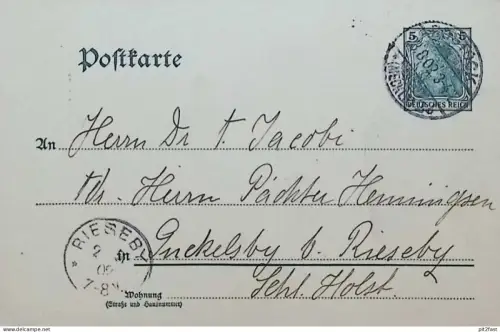 Postkarte
5 5
DEUTSCHES REICH
An Herrn Dr. t. Jacobi
Adr. Herrn Pächter Henningsen
in Guckelsby b. Rieseby
Schl. Holst.
RIESEBY
2
02
7-8
Wohnung
(Straße und Hausnummer)